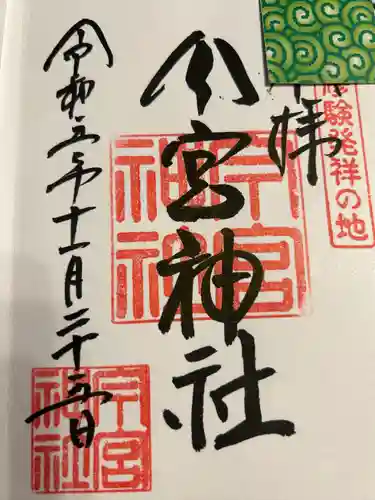 修験発祥の地
拝
今宮神社
今宮
神社
令和五年十一月二十五日
今宮
神社